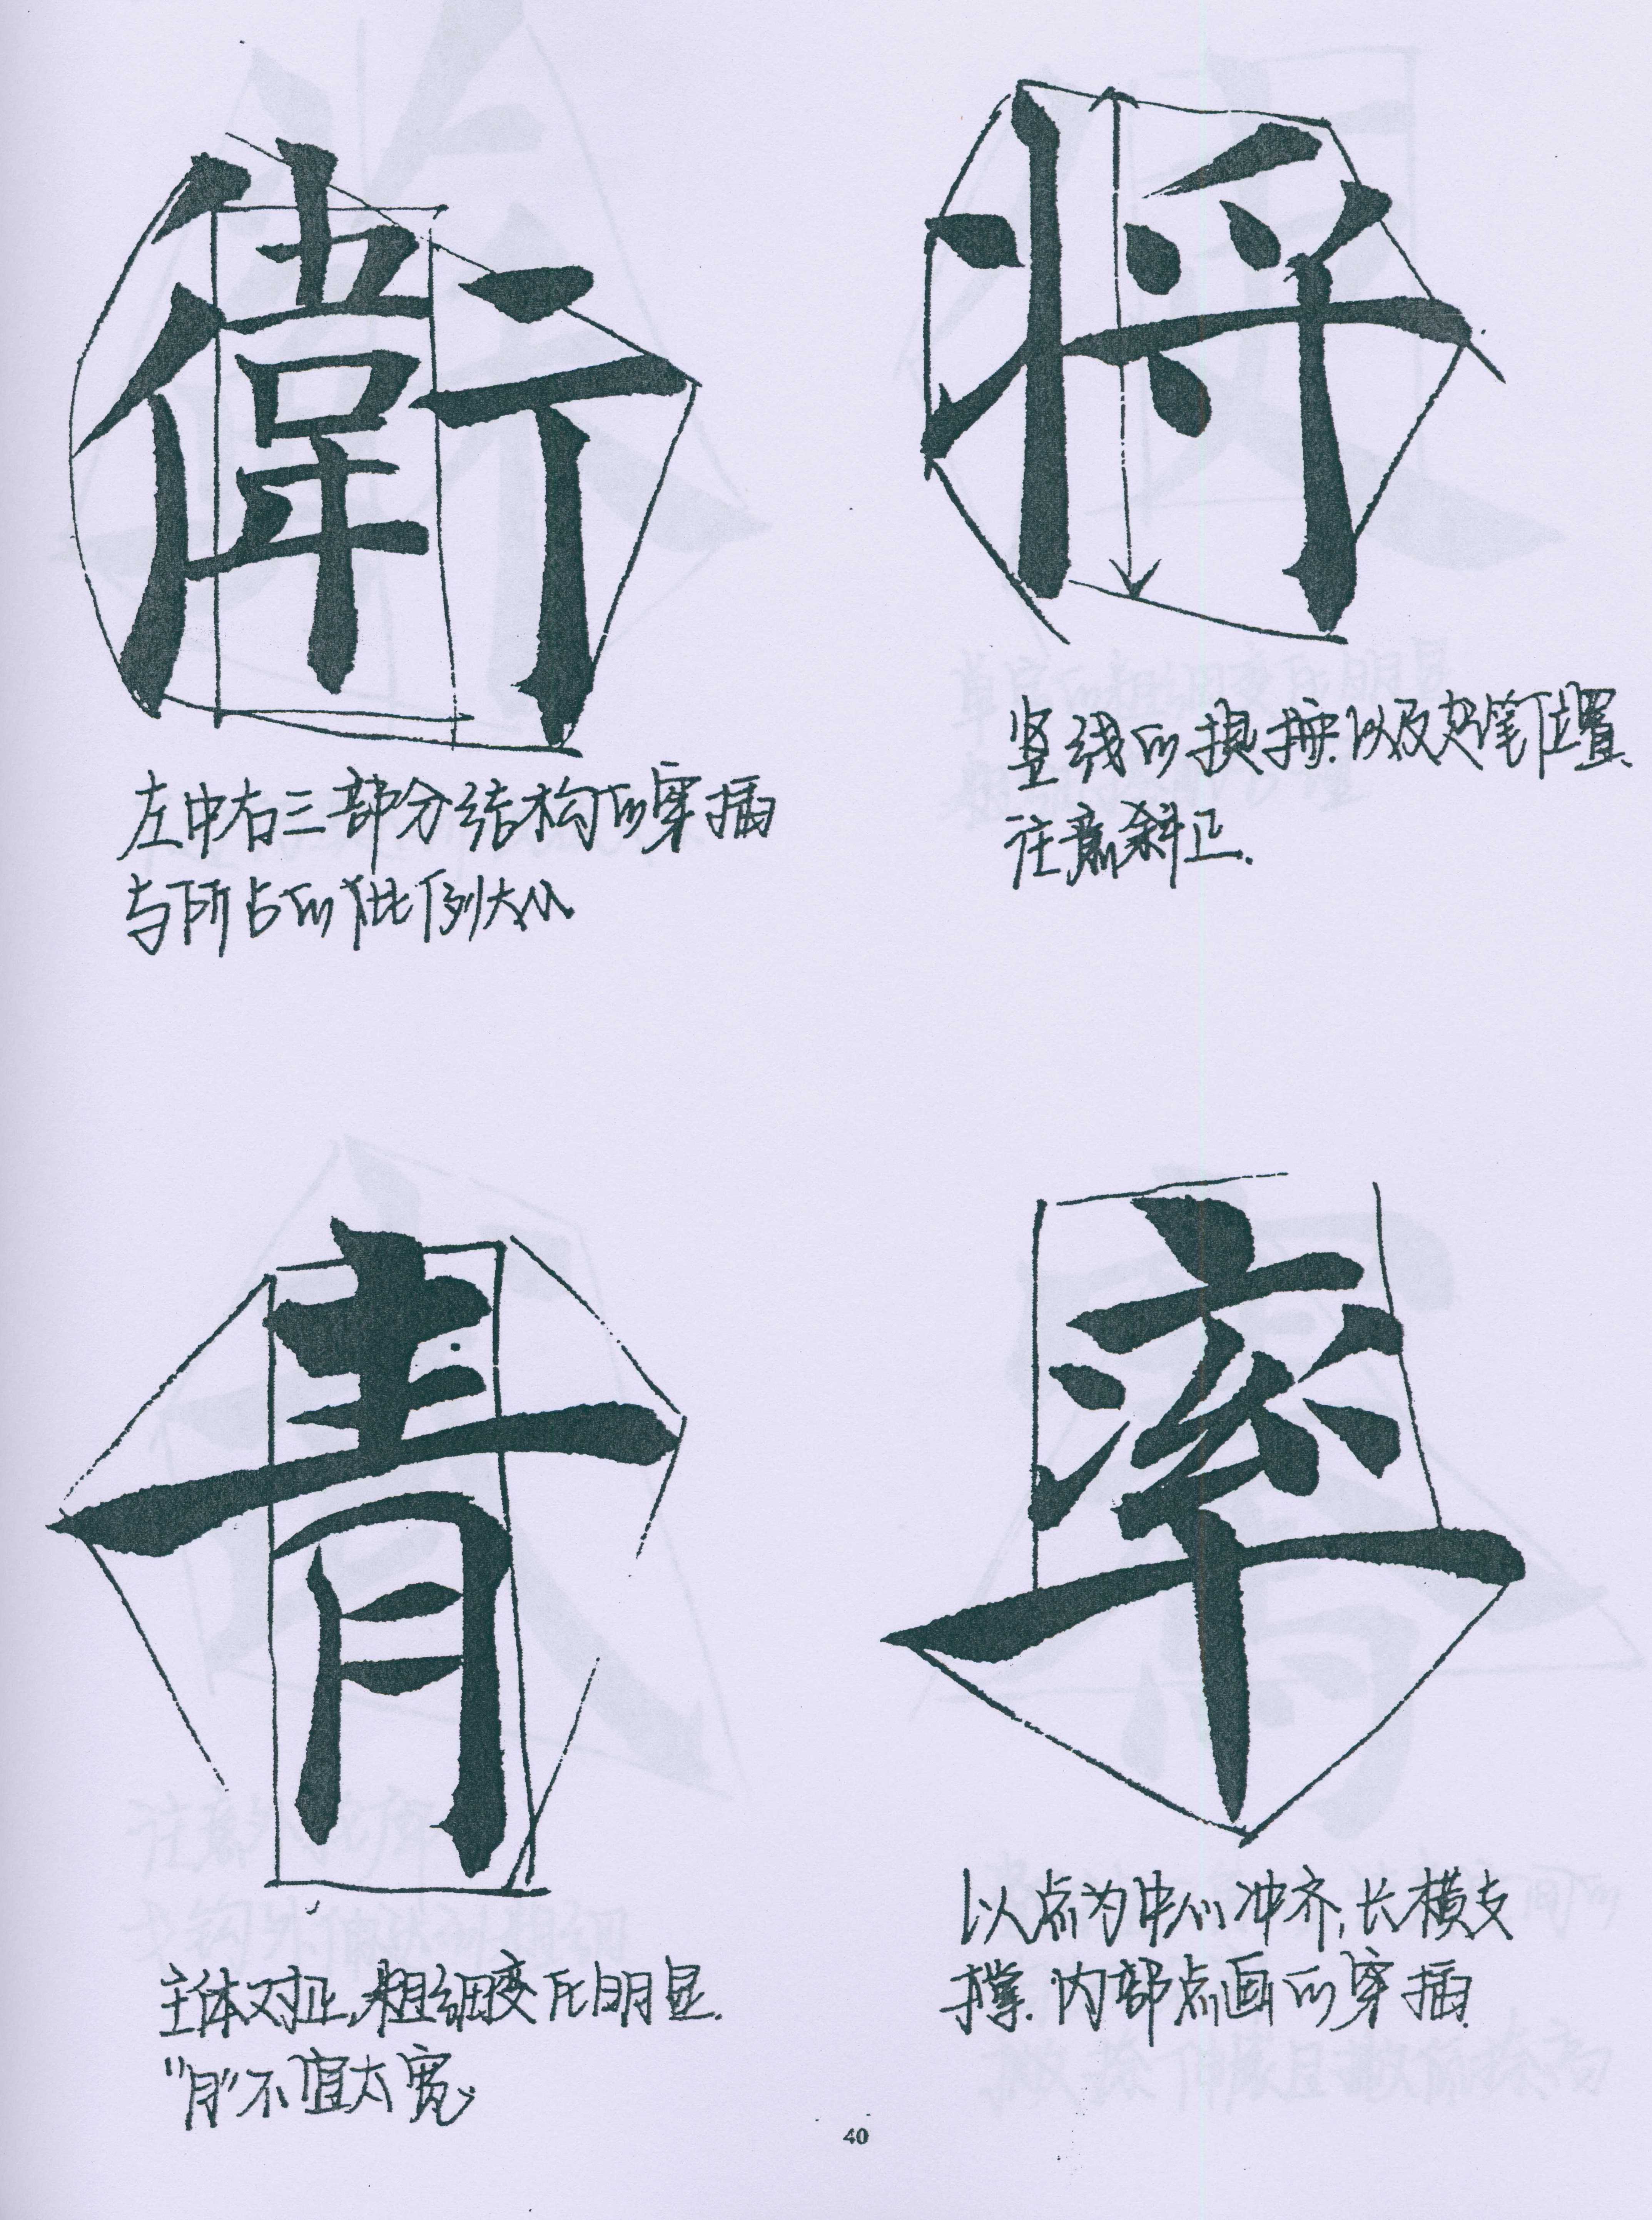 衛
左中右三部分结构的穿插
与所占的比例大小
将
竖线的提按.以及起笔位置.
注意斜正.
青
主体对正,粗细变化明显.
"月"不宜太宽。
率
以点为中心冲齐,长横支
撑.内部点画的穿插.
40